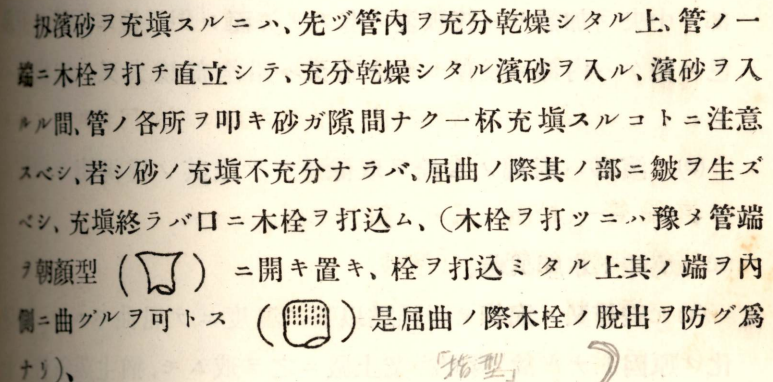 扨濱砂ヲ充塡スルニハ、先ヅ管內ヲ充分乾燥シタル上、管ノ一
端ニ木栓ヲ打チ直立シテ、充分乾燥シタル濱砂ヲ入ル、濱砂ヲ入
ルル間、管ノ各所ヲ叩キ砂ガ隙間ナク一杯充塡スルコトニ注意
スベシ、若シ砂ノ充塡不充分ナラバ、屈曲ノ際其ノ部ニ皺ヲ生ズ
ベシ、充塡終ラバ口ニ木栓ヲ打込ム、(木栓ヲ打ツニハ豫メ管端
ヲ朝顏型()ニ開キ置キ、栓ヲ打込ミタル上其ノ端ヲ內
側ニ曲グルヲ可トス()是屈曲ノ際木栓ノ脫出ヲ防グ爲
ナリ)、